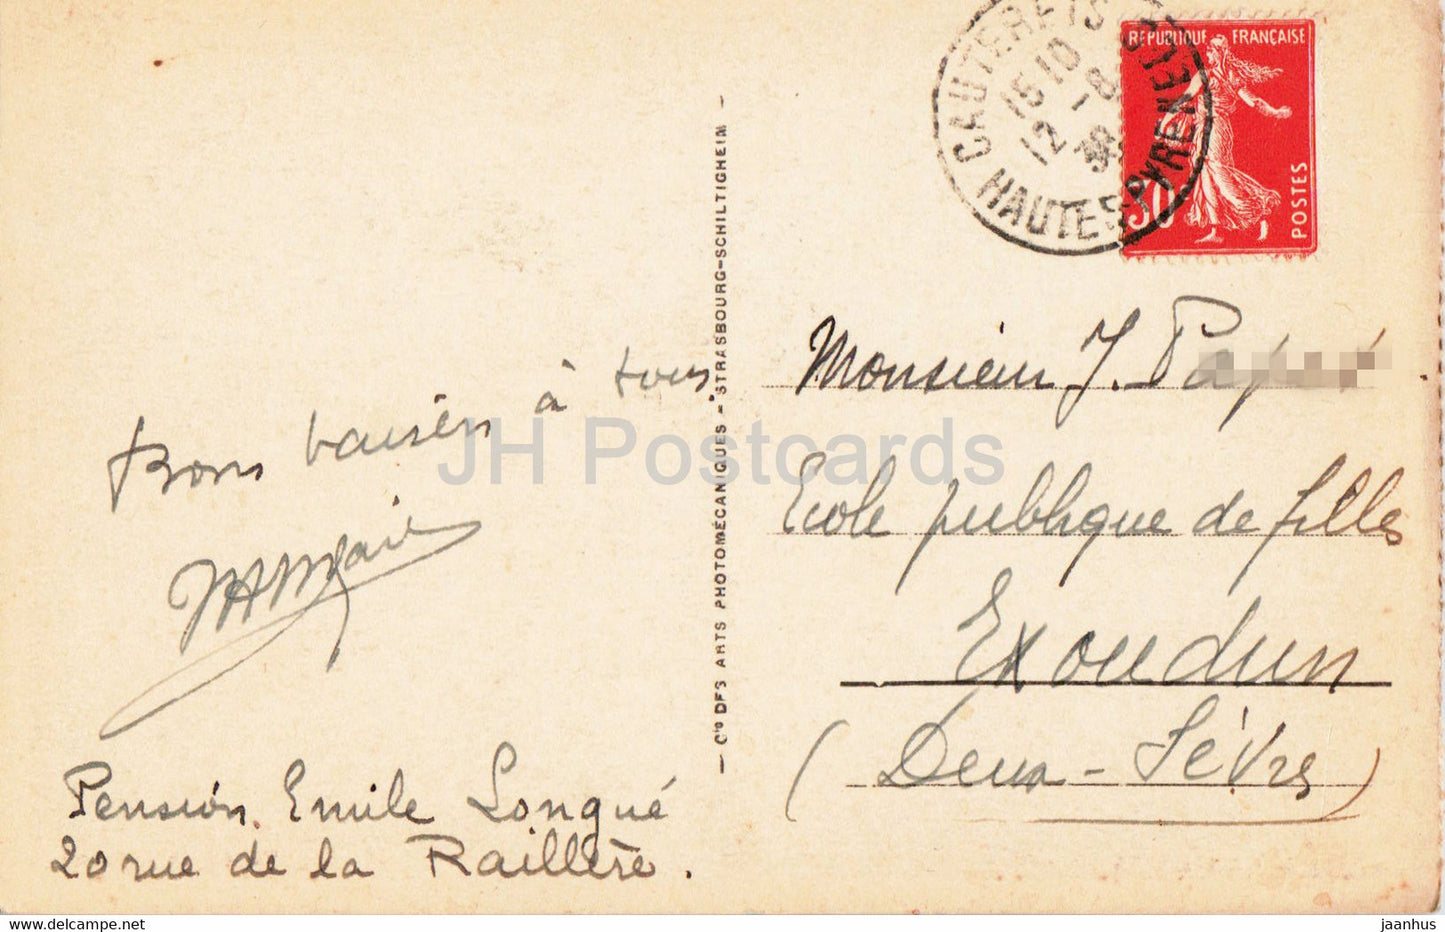 CAUTERETS
HAUTES-PYRENEES
15 10
12 - 8
38
REPUBLIQUE FRANÇAISE
POSTES
30
Monsieur J.
Bons baisers à tous.
École publique de filles
Exoudun
(Deux-Sèvres)
Pension Emile Longué
20 rue de la Raillère.
— Cie DES ARTS PHOTOMÉCANIQUES - STRASBOURG-SCHILTIGHEIM —
JH Postcards
www.delcampe.net
jaanhus